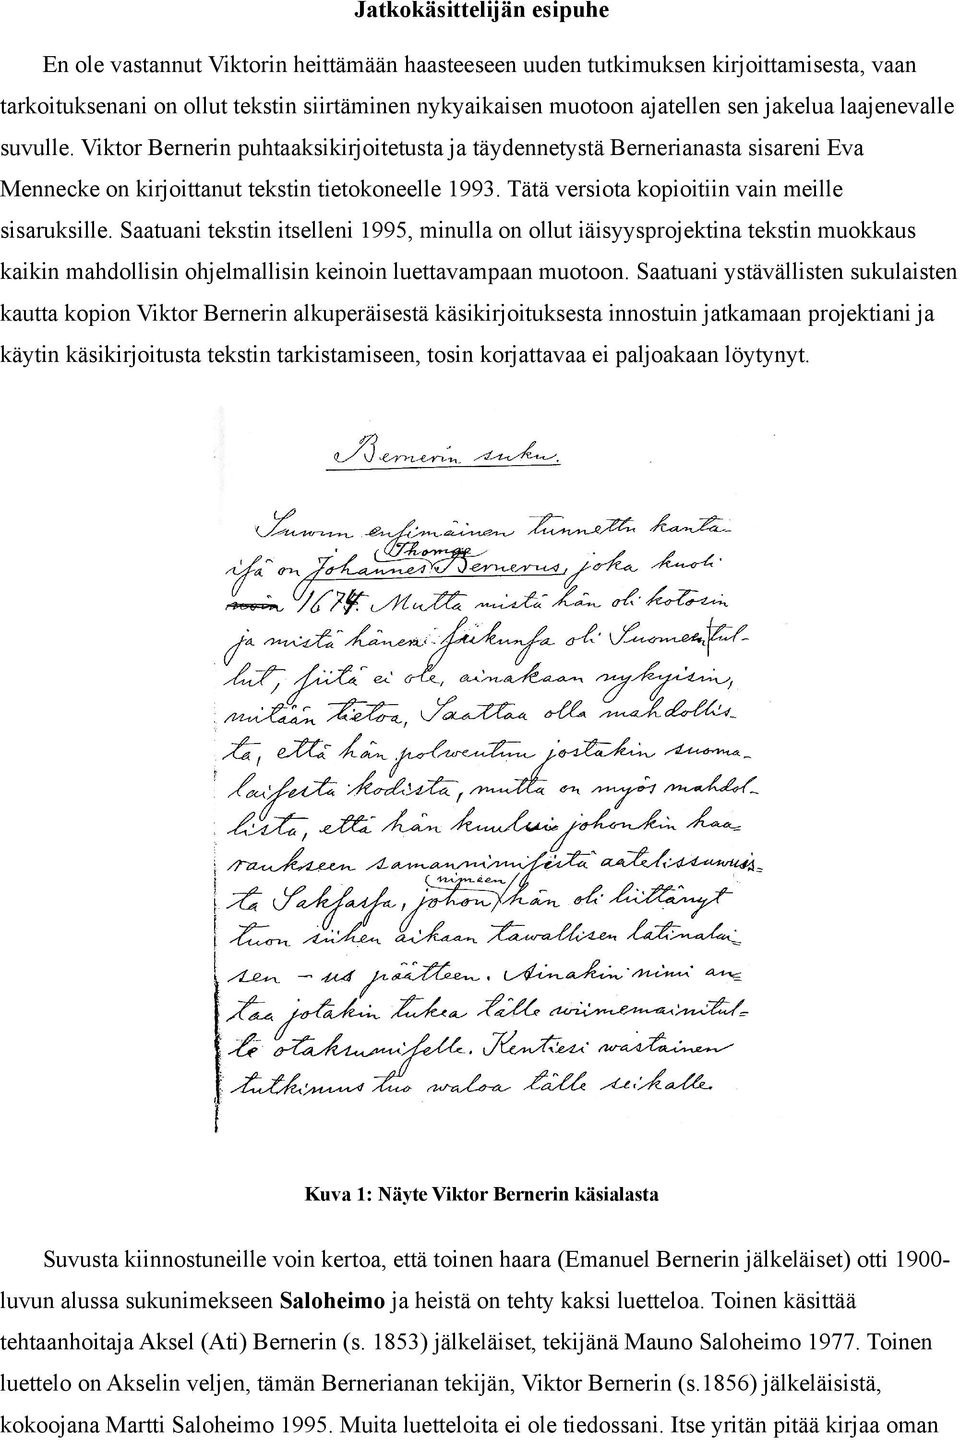 Jatkokäsittelijän esipuhe
En ole vastannut Viktorin heittämään haasteeseen uuden tutkimuksen kirjoittamisesta, vaan
tarkoituksenani on ollut tekstin siirtäminen nykyaikaisen muotoon ajatellen sen jakelua laajenevalle
suvulle. Viktor Bernerin puhtaaksikirjoitetusta ja täydennetystä Bernerianasta sisareni Eva
Mennecke on kirjoittanut tekstin tietokoneelle 1993. Tätä versiota kopioitiin vain meille
sisaruksille. Saatuani tekstin itselleni 1995, minulla on ollut iäisyysprojektina tekstin muokkaus
kaikin mahdollisin ohjelmallisin keinoin luettavampaan muotoon. Saatuani ystävällisten sukulaisten
kautta kopion Viktor Bernerin alkuperäisestä käsikirjoituksesta innostuin jatkamaan projektiani ja
käytin käsikirjoitusta tekstin tarkistamiseen, tosin korjattavaa ei paljoakaan löytynyt.
Bernerin suku.
Suwun ensimäinen tunnettu kanta-
isä on Johannes Thomae Bernerus, joka kuoli
1674. Mutta mistä hän oli kotosin
ja mistä hänen sukunsa oli Suomen tul-
lut, siitä ei ole, ainakaan nykyisin,
mitään tietoa. Saattaa olla mahdollis-
ta, että hän polweutuu jostakin suoma-
laisesta kodista, mutta on myös mahdol-
lista, että hän kuului johonkin haa-
raukseen samannimisestä aatelissuwus-
ta Saksassa, johon nimeen hän oli liittänyt
tuon siihen aikaan tawallisen latinalai-
sen - us päätteen. Ainakin nimi an-
taa jotakin tukea tälle wiimemainitul-
le otaksumiselle. Kentiesi wastainen
tutkimus tuo waloa tälle seikalle.
Kuva 1: Näyte Viktor Bernerin käsialasta
Suvusta kiinnostuneille voin kertoa, että toinen haara (Emanuel Bernerin jälkeläiset) otti 1900-
luvun alussa sukunimekseen Saloheimo ja heistä on tehty kaksi luetteloa. Toinen käsittää
tehtaanhoitaja Aksel (Ati) Bernerin (s. 1853) jälkeläiset, tekijänä Mauno Saloheimo 1977. Toinen
luettelo on Akselin veljen, tämän Bernerianan tekijän, Viktor Bernerin (s.1856) jälkeläisistä,
kokoojana Martti Saloheimo 1995. Muita luetteloita ei ole tiedossani. Itse yritän pitää kirjaa oman